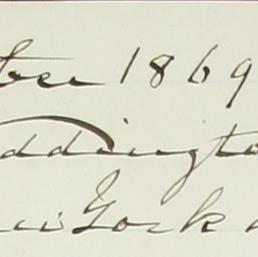 ber 1869
ddingto
ew York